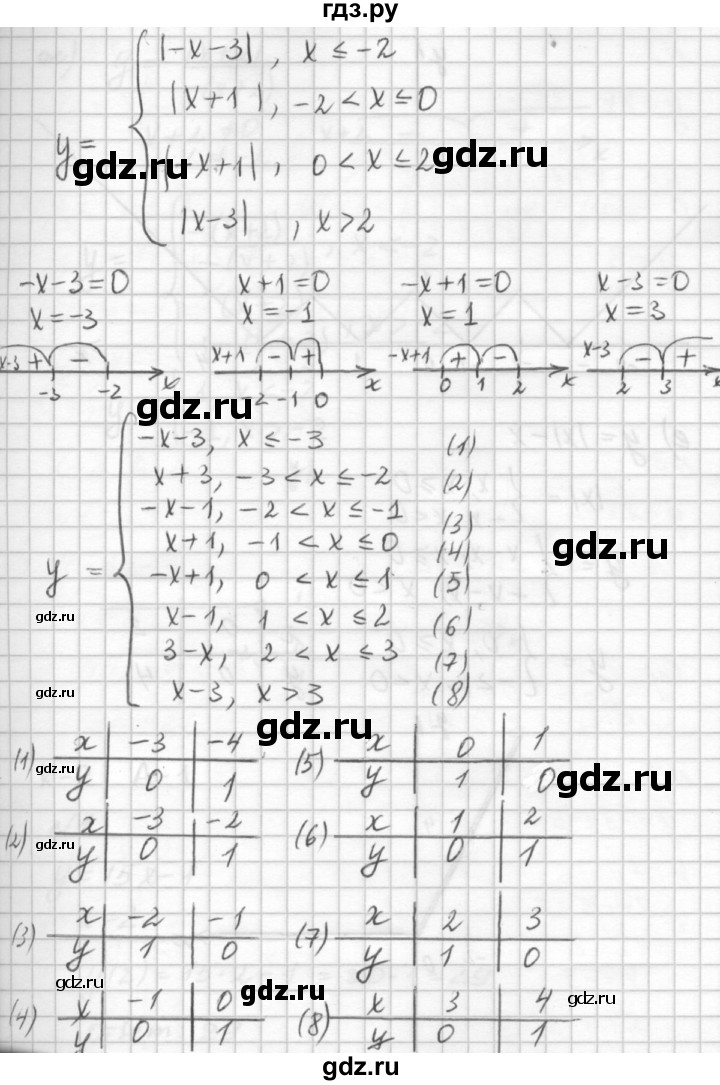 гдз.ру
|-x-3|, x ≤ -2
|x+1|, -2 < x ≤ 0
y=
gdz.ru
|-x+1|, 0 < x ≤ 2
gdz.ru
|x-3|, x > 2
-x-3=0 x+1=0 -x+1=0 x-3=0
x=-3 x=-1 x=1 x=3
x-3 + - x+1 - + -x+1 + - x-3 - +
-3 -2 x -2 -1 0 x 0 1 2 x 2 3 x
gdz.ru
-x-3, x ≤ -3 (1)
x+3, -3 < x ≤ -2 (2)
-x-1, -2 < x ≤ -1 (3)
x+1, -1 < x ≤ 0 (4)
gdz.ru
y = -x+1, 0 < x ≤ 1 (5)
gdz.ru
x-1, 1 < x ≤ 2 (6)
3-x, 2 < x ≤ 3 (7)
gdz.ru
x-3, x > 3 (8)
gdz.ru
(1) x -3 -4 (5) x 0 1
y 0 1 y 1 0
gdz.ru
(2) x -3 -2 (6) x 1 2
gdz.ru
y 0 1 y 0 1
(3) x -2 -1 (7) x 2 3
y 1 0 y 1 0
gdz.ru
gdz.ru
gdz.ru
(4) x -1 0 (8) x 3 4
y 0 1 y 0 1
gdz.ru